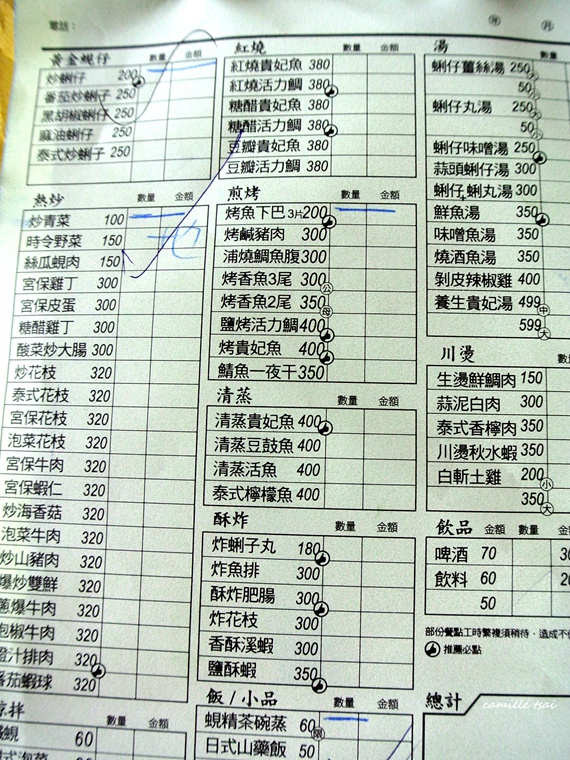 電話：
月
黃金蜆仔 數量 金額
炒蜊仔 200
番茄炒蜊仔 250
黑胡椒蜊仔 250
麻油蜊仔 250
泰式炒蜊子 250
熱炒 數量 金額
炒青菜 100
時令野菜 150
絲瓜蜆肉 150
宮保雞丁 300
宮保皮蛋 300
糖醋雞丁 300
酸菜炒大腸 300
炒花枝 320
泰式花枝 320
宮保花枝 320
泡菜花枝 320
宮保牛肉 320
宮保蝦仁 320
炒海香菇 320
泡菜牛肉 320
炒山豬肉 320
爆炒雙鮮 320
蔥爆牛肉 320
泡椒牛肉 320
橙汁排肉 320
番茄蝦球 320
涼拌 數量 金額
鹹蜆 60
60
紅燒 數量 金額
紅燒貴妃魚 380
紅燒活力鯛 380
糖醋貴妃魚 380
糖醋活力鯛 380
豆瓣貴妃魚 380
豆瓣活力鯛 380
煎烤 數量 金額
烤魚下巴 3片 200
烤鹹豬肉 300
浦燒鯛魚腹 300
烤香魚3尾 300 公
烤香魚2尾 350 母
鹽烤活力鯛 400
烤貴妃魚 400
鯖魚一夜干 350
清蒸 數量 金額
清蒸貴妃魚 400
清蒸豆鼓魚 400
清蒸活魚 400
泰式檸檬魚 400
酥炸 數量 金額
炸蜊子丸 180
炸魚排 300
酥炸肥腸 300
炸花枝 300
香酥溪蝦 300
鹽酥蝦 350
飯/小品 數量 金額
蜆精茶碗蒸 60
日式山藥飯 50
湯 數量
蜊仔薑絲湯 250
50 小
蜊仔丸湯 250 大
50 小
蜊仔味噌湯 250
蒜頭蜊仔湯 300
蜊仔+蜊丸湯 300
鮮魚湯 350
味噌魚湯 350
燒酒魚湯 350
剝皮辣椒雞 400
養生貴妃湯 499 中
599 大
川燙 數量
生燙鮮鯛肉 150
蒜泥白肉 300
泰式香檸肉 350
川燙秋水蝦 350
白斬土雞 200 小
350 大
飲品 金額 數量
啤酒 70
飲料 60
50
部份餐點工時繁複須稍待，造成不
推薦必點
總計
camille tsai